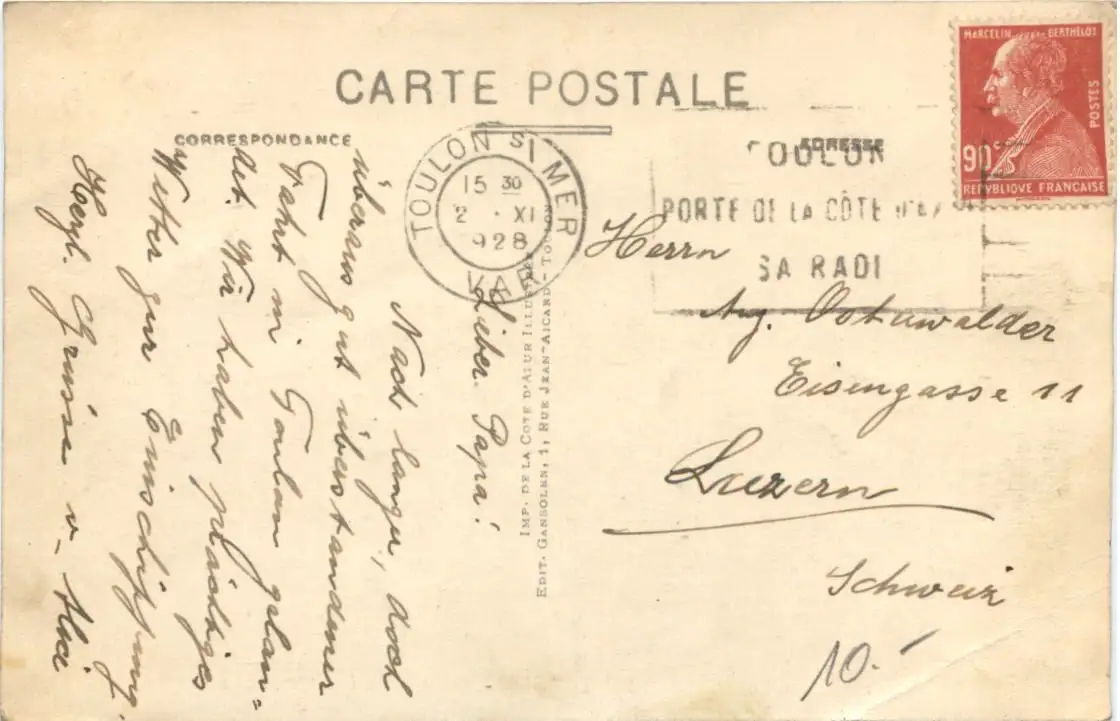 CARTE POSTALE
CORRESPONDANCE
ADRESSE
MARCELIN BERTHELOT
POSTES
90c
REPUBLIQUE FRANCAISE
TOULON S/MER
15 30
2 · XI
928
VAR
TOULON
PORTE DE LA CÔTE D'AZ
SA RADE
Lieber Papa!
Nach langer, doch
überaus gut überstandener
Fahrt in Toulon gelan=
det. Wir haben prächtiges
Wetter zur Einschiffung.
Herzl. Grüsse v.
IMP. DE LA COTE D'AZUR ILLUSTRÉE
EDIT. GANSOLEN, 1, RUE JEAN-AICARD - TOULON
Herrn
Aug. Ostuwalder
Eisengasse 11
Luzern
Schweiz
10.-